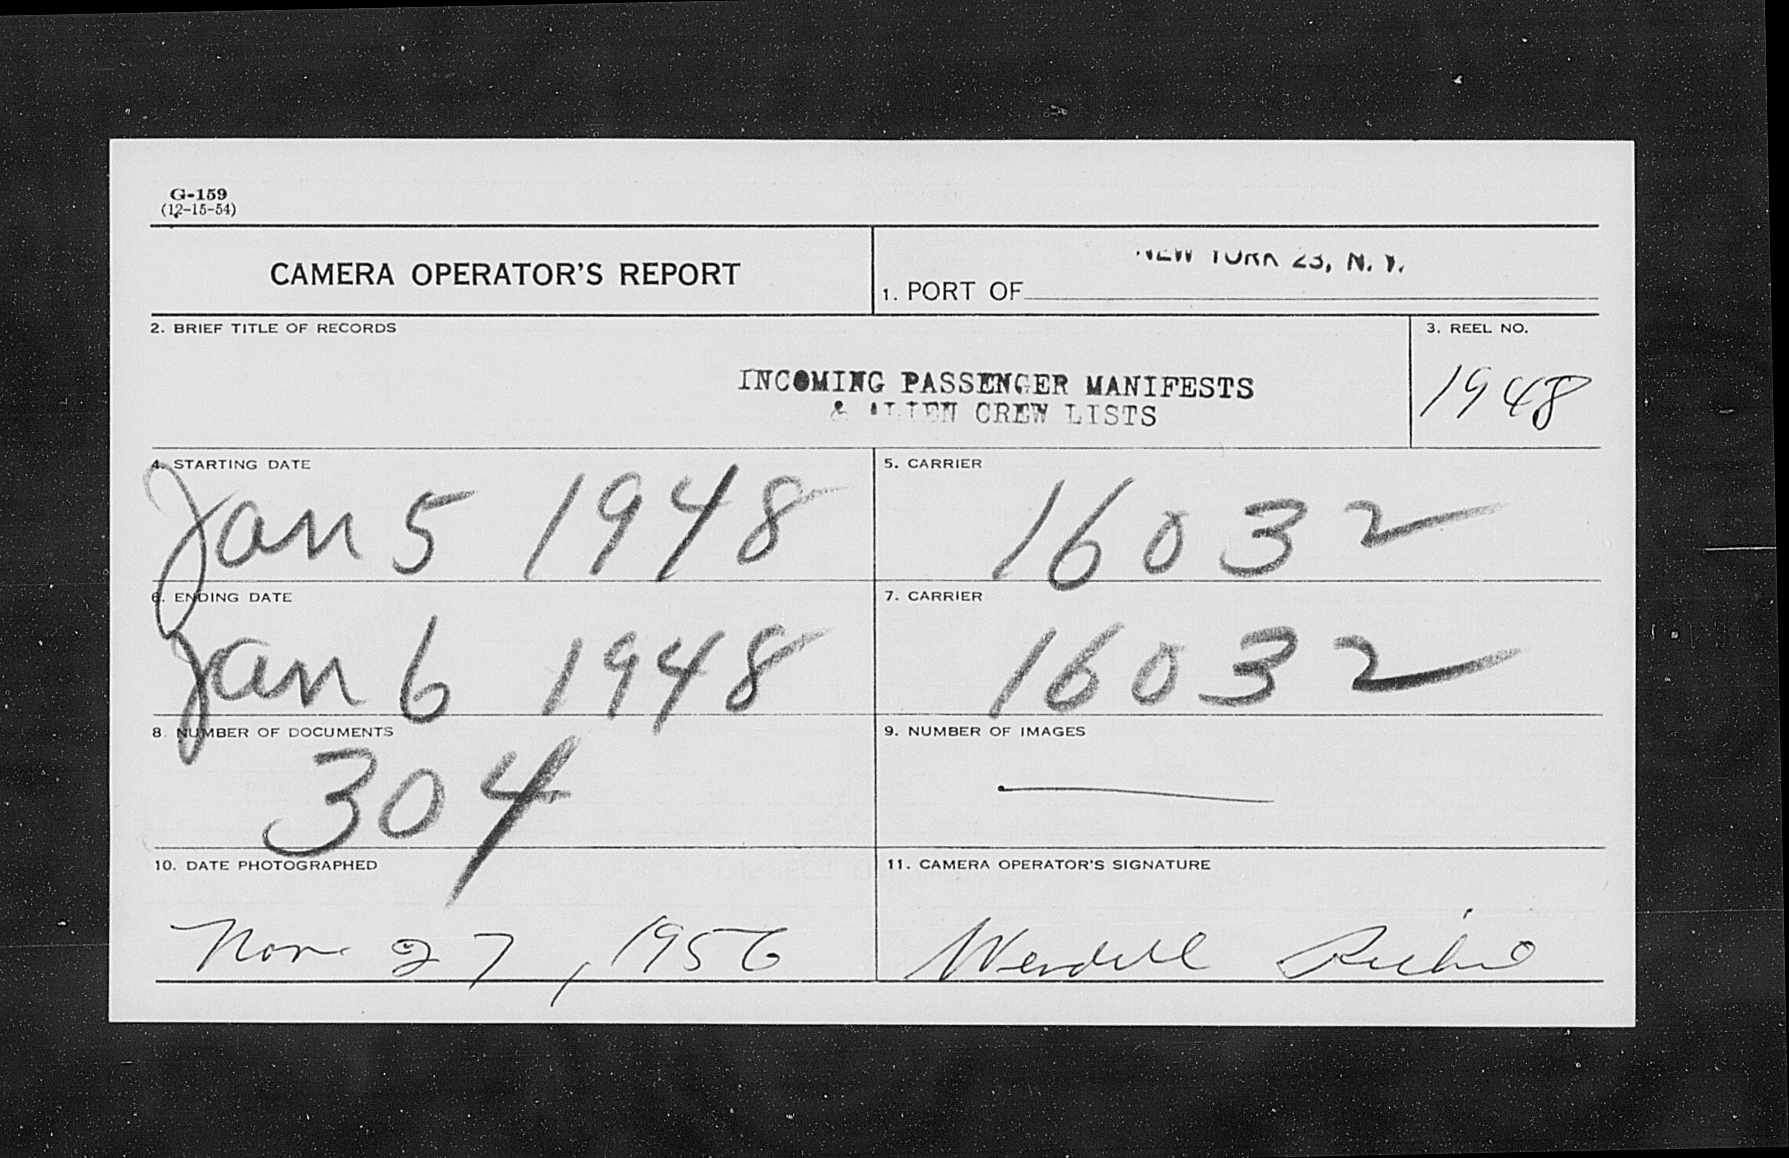 G-159
(12-15-54)
CAMERA OPERATOR'S REPORT
1. PORT OF NEW YORK 23, N. Y.
2. BRIEF TITLE OF RECORDS
INCOMING PASSENGER MANIFESTS
& ALIEN CREW LISTS
3. REEL NO.
1948
4. STARTING DATE
Jan 5 1948
5. CARRIER
16032
6. ENDING DATE
Jan 6 1948
7. CARRIER
16032
8. NUMBER OF DOCUMENTS
304
9. NUMBER OF IMAGES
10. DATE PHOTOGRAPHED
Nov 27, 1956
11. CAMERA OPERATOR'S SIGNATURE
Wendell